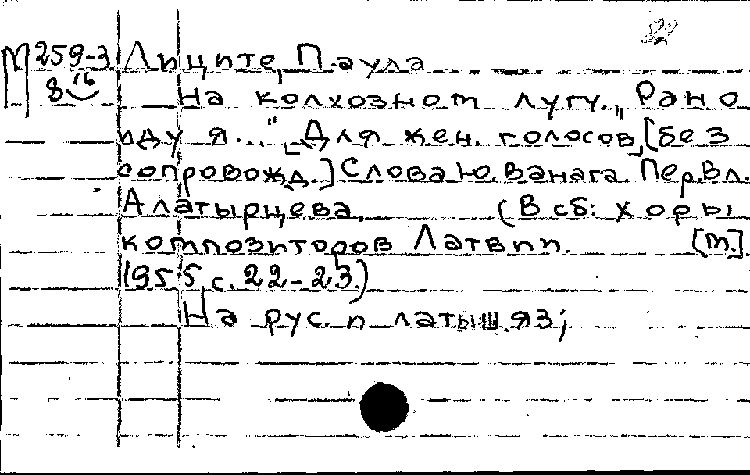 М 259-3 Лиците, Паула
8 16 На колхозном лугу. „Рано
иду я...“ [Для жен. голосов] [без
сопровожд.] Слова Ю. Ванага. Пер. Вл.
Алатырцева. (В сб: Хоры
композиторов Латвии. [М.]
1955, с. 22-23.)
На рус. и латыш. яз;